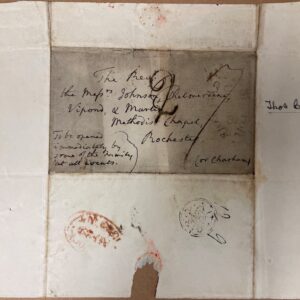 The Rev.
the Mess.rs Johnson, Chelmerdine
Vipond, & Martin
Methodist Chapel,
Rochester
(or Chatham)
To be opened
immediately by
some of the family
at all events.
2
Thos